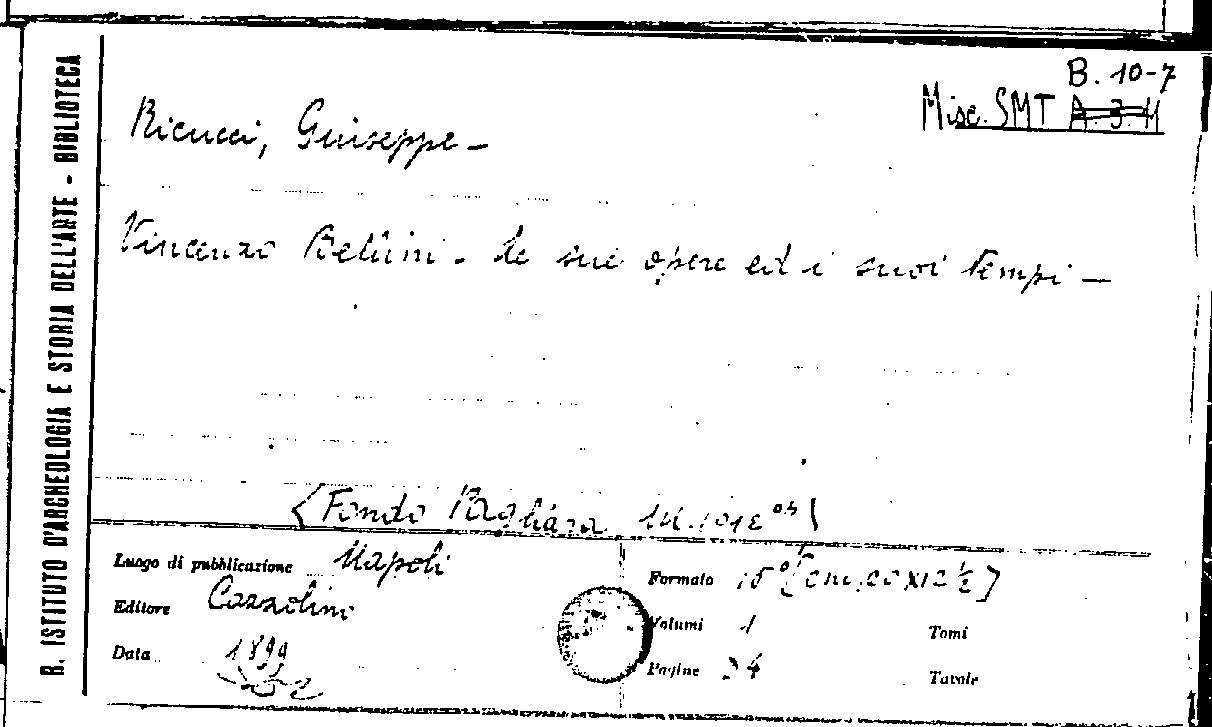 B. ISTITUTO D'ARCHEOLOGIA E STORIA DELL'ARTE - BIBLIOTECA
B. 10-7
Misc. SMT A. 3. M
Ricucci, Giuseppe -
Vincenzo Bellini. Le sue opere ed i suoi tempi -
Fondo Pagliara
Luogo di pubblicazione Napoli
Editore Cozzolino
Data 1899
Formato
Volumi 1
Tomi
Pagine 24
Tavole